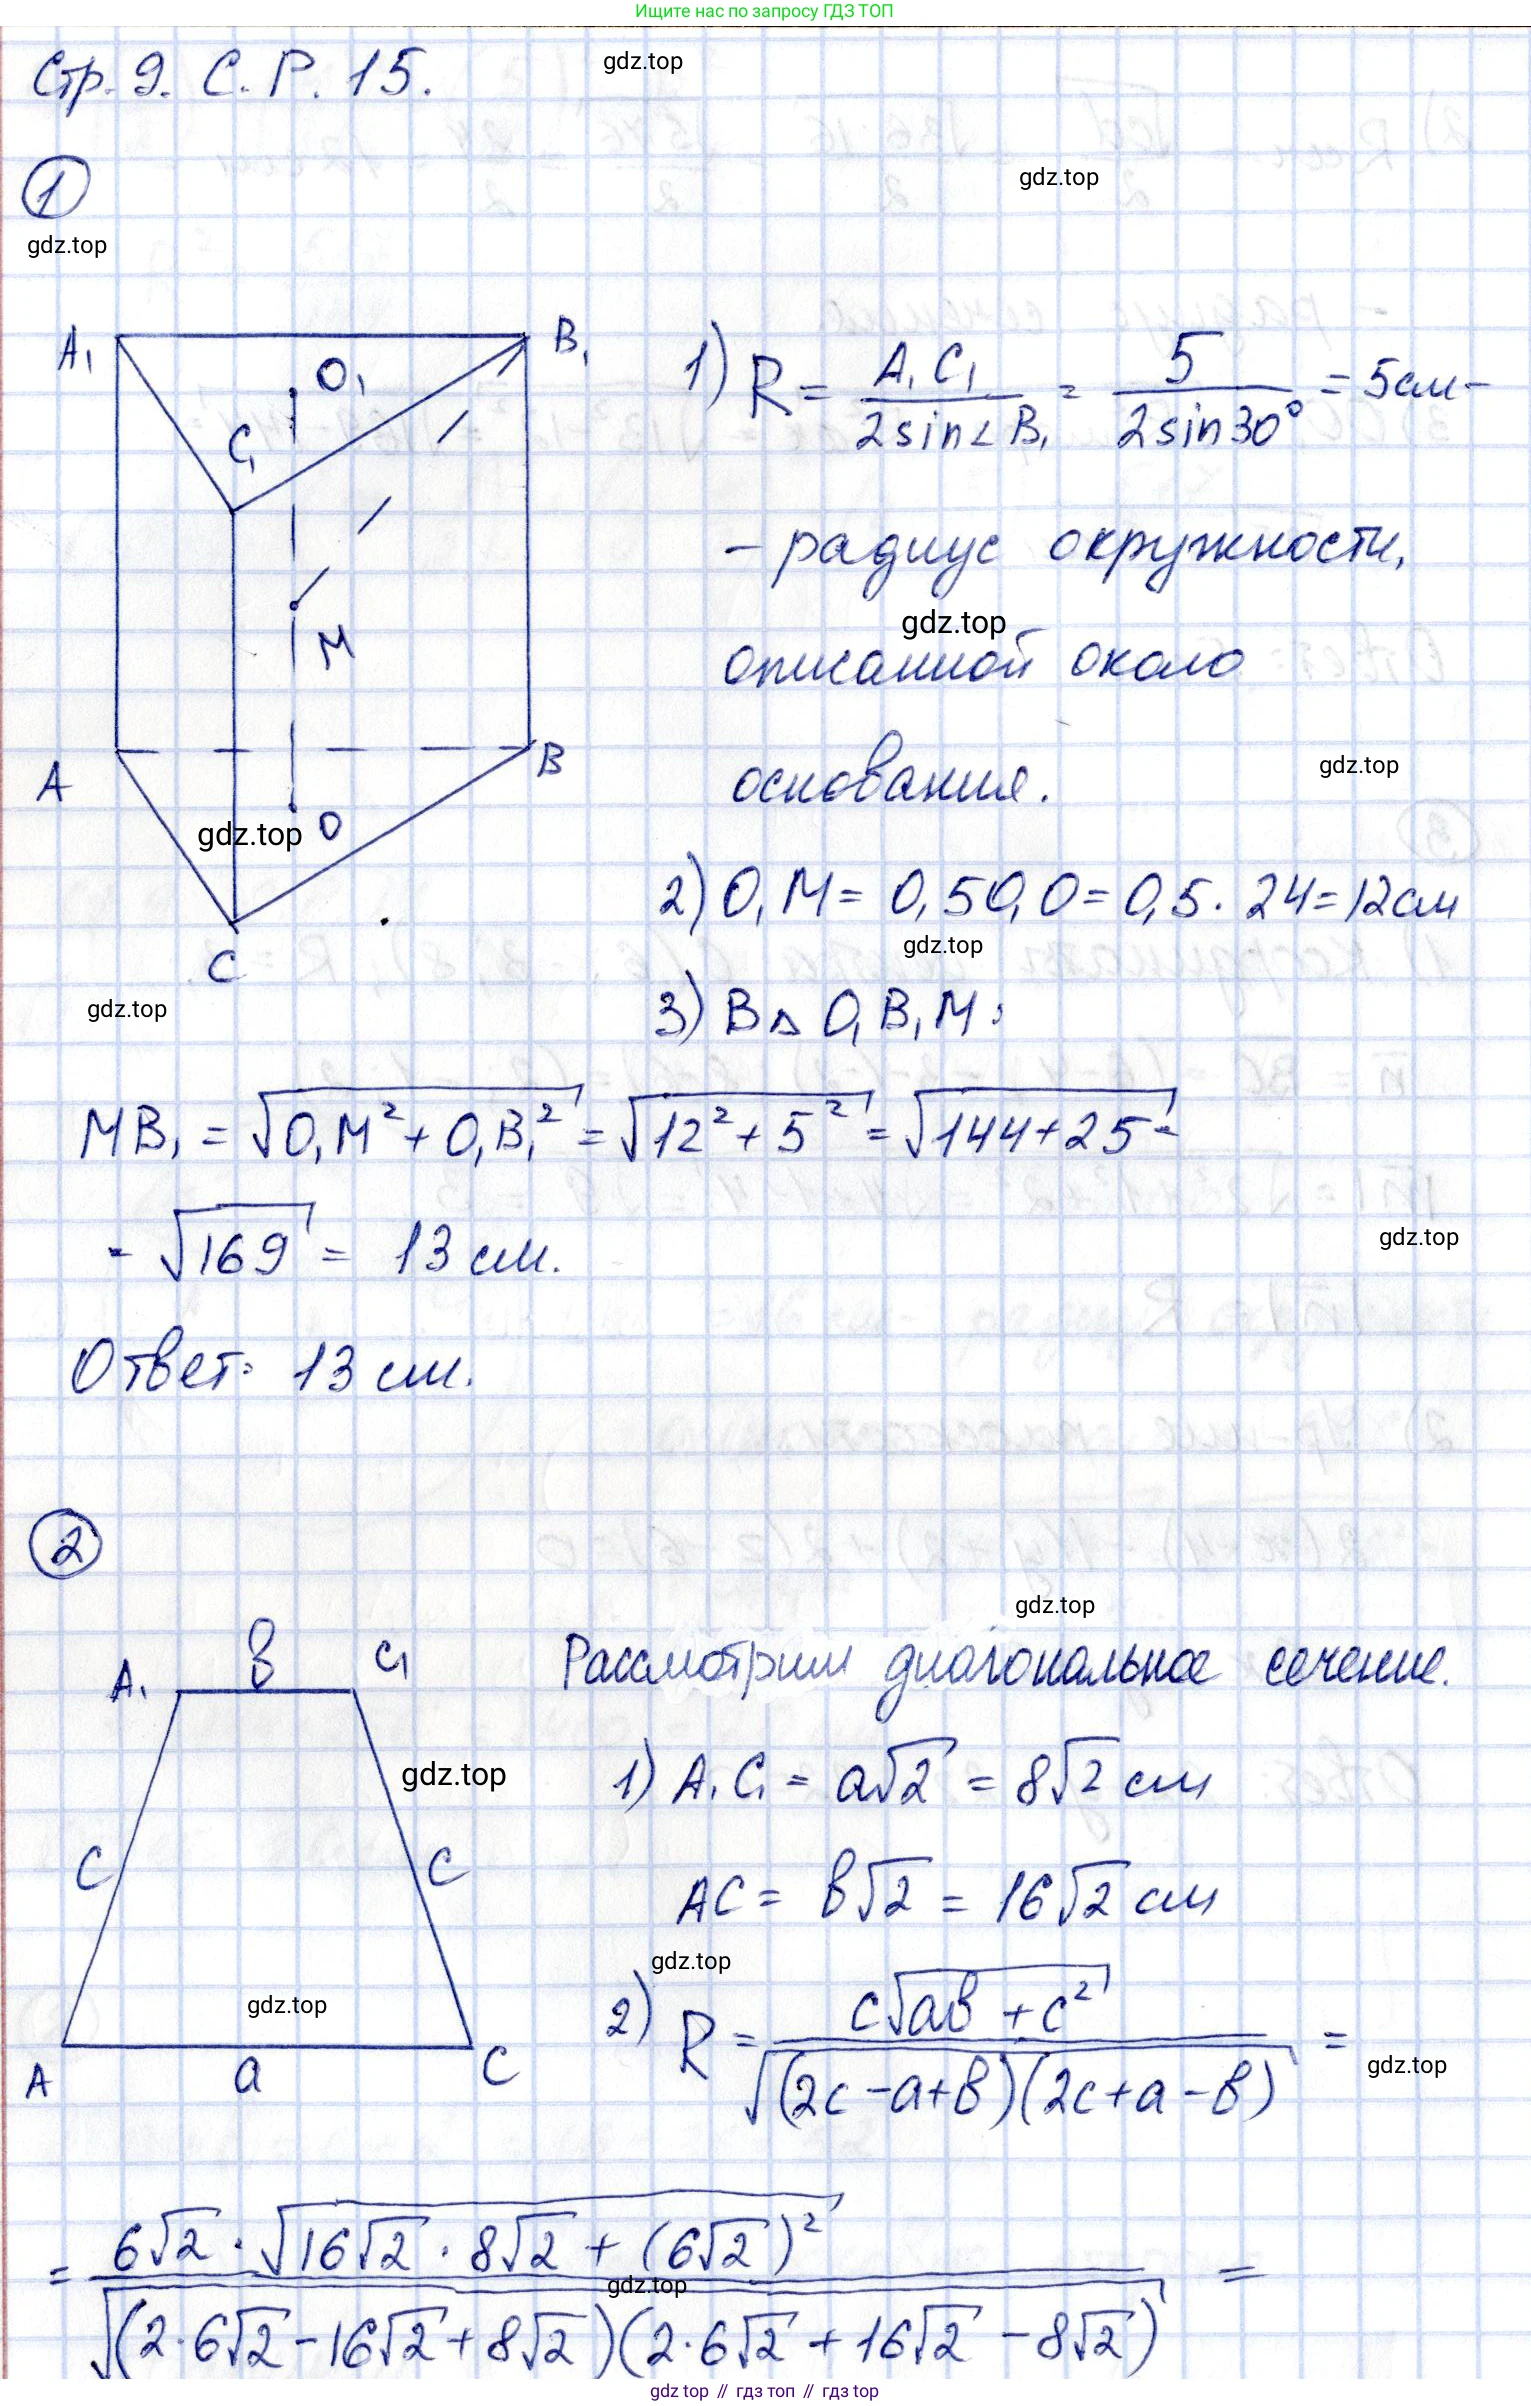 Ищите нас по запросу ГДЗ ТОП
Стр. 9. С. Р. 15.
gdz.top
1
gdz.top
gdz.top
A₁ B₁ O₁ C₁ M A B O C
1) R = A₁C₁ / 2sin∠B₁ = 5 / 2sin30° = 5см –
– радиус окружности,
gdz.top
описанной около
основания.
gdz.top
gdz.top
2) O₁M = 0,5O₁O = 0,5 · 24 = 12см
gdz.top
gdz.top
3) В △ O₁B₁M:
MB₁ = √(O₁M² + O₁B₁²) = √(12² + 5²) = √(144+25) =
= √169 = 13 см.
gdz.top
Ответ: 13 см.
2
gdz.top
A₁ b C₁
Рассмотрим диагональное сечение.
gdz.top
1) A₁C₁ = a√2 = 8√2 см
c c
AC = b√2 = 16√2 см
gdz.top
gdz.top
2) R = c√(ab + c²) / √((2c – a + b)(2c + a – b)) =
gdz.top
A a C
= 6√2 · √(16√2 · 8√2 + (6√2)²) / √((2·6√2 – 16√2 + 8√2)(2·6√2 + 16√2 – 8√2)) =
gdz.top
gdz top // гдз топ // gdz top